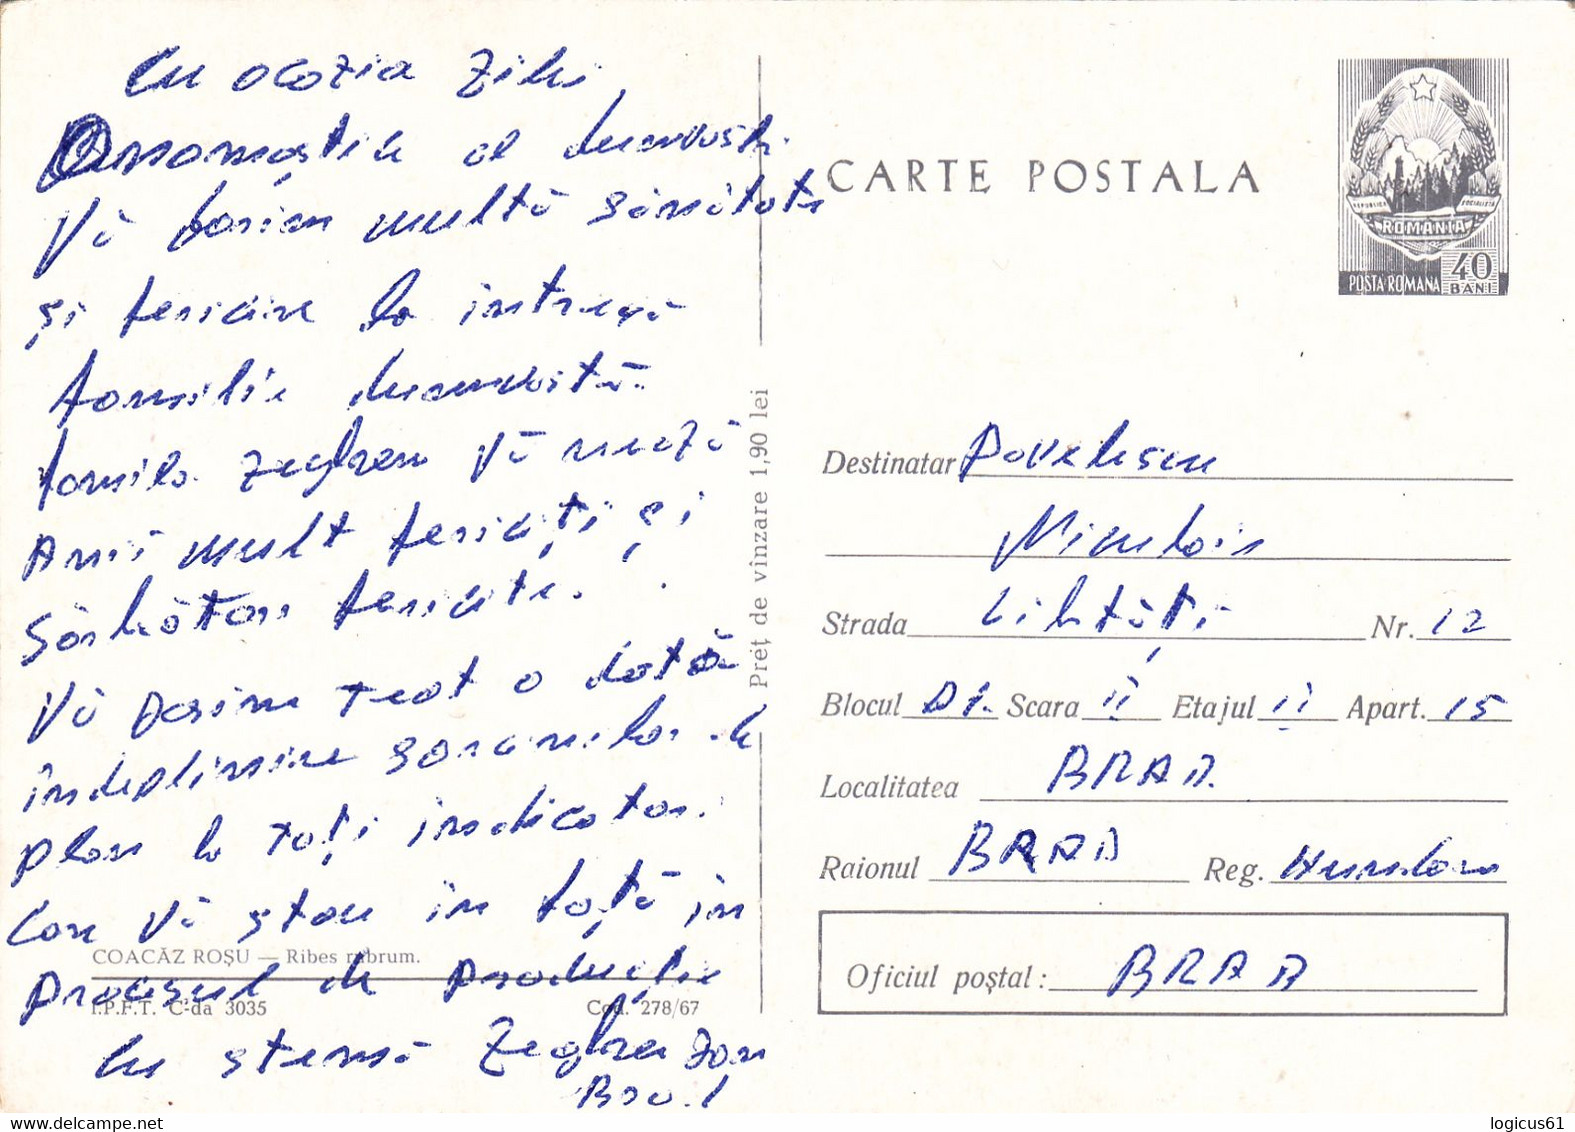 Cu ocazia zilei
Onomastice al dumvostr.
Vă dorim multă sănătate
și fericire la întreagă
familie dumvostră.
familia Zeghrea Vă urează
Anii mult fericiți și
Sărbători fericite.
Vă Dorim tuot o dată
îndeplinire sarcinilor de
plan la toți indicatori.
Care Vă stau în față în
Procesul de producție
Cu stemă Zeghrea Ioan
Brad
COACĂZ ROȘU — Ribes rubrum.
I.P.F.T. C-da 3035 Cod. 278/67
Preț de vînzare 1,90 lei
CARTE POSTALA
REPUBLICA SOCIALISTA
ROMANIA
POSTA ROMANA 40 BANI
Destinatar Povelescu
Niculaie
Strada Libtății Nr. 12
Blocul D1. Scara II Etajul II Apart. 15
Localitatea BRAD.
Raionul BRAD Reg. Hunedoara
Oficiul poștal: BRAD
delcampe.net
logicus61